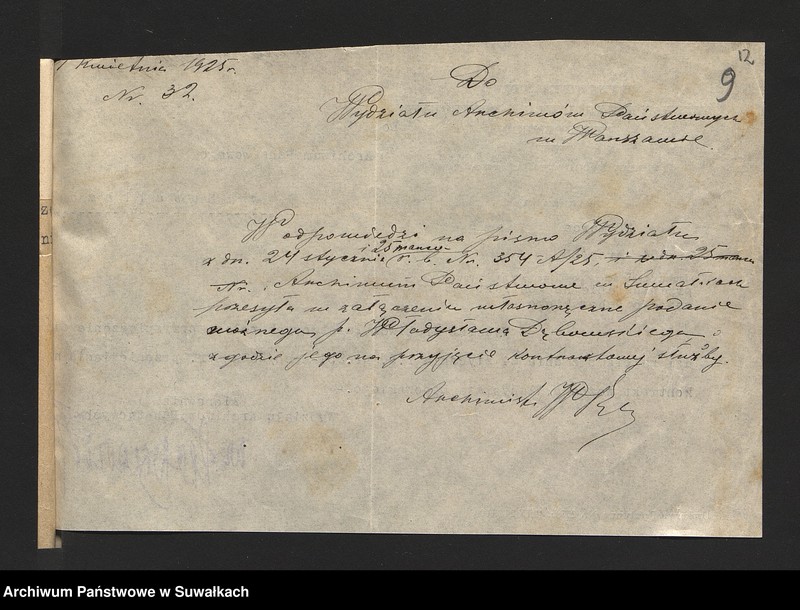 12
9
1 kwietnia 1925 r.
Nr. 32.
Do
Wydziału Archiwów Państwowych
w Warszawie.
W odpowiedzi na pismo Wydziału
i 25 marca
z dn. 24 stycznia r. b. Nr. 354-A/25, i z dn. 25 marca
Nr. Archiwum Państwowe w Suwałkach
przesyła w załączeniu własnoręczne podanie
woźnego p. Władysława Dąbrowskiego o
zgodzie jego na przyjęcie kontraktowej służby.
Archiwista
Archiwum Państwowe w Suwałkach